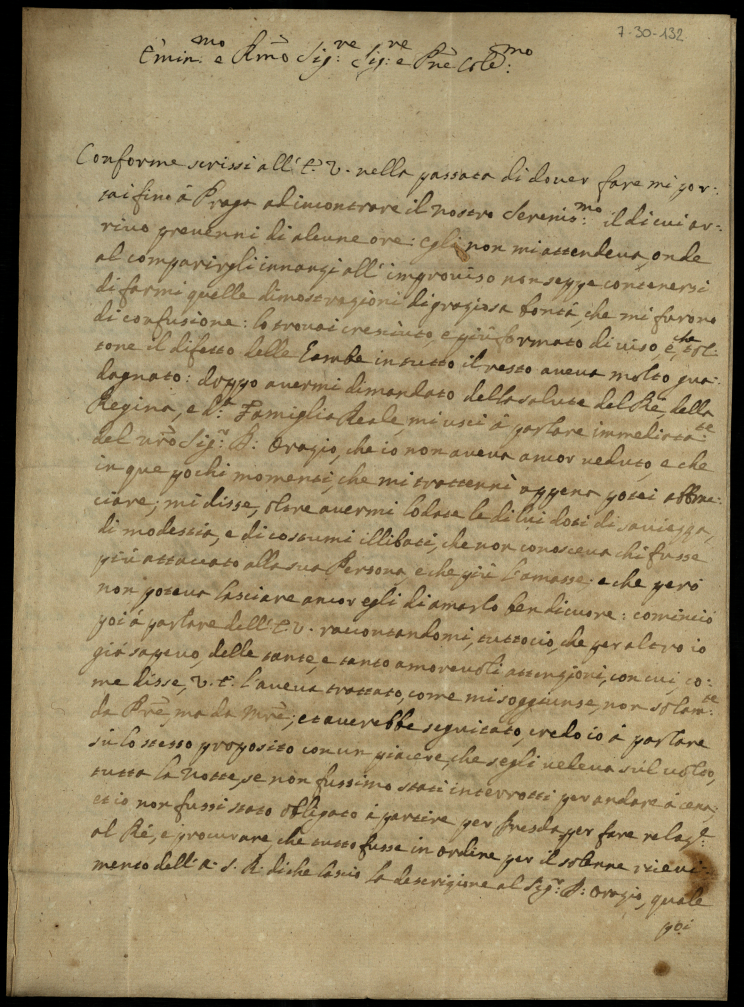 7-30-132
Emin.mo e Rmo Sig.re Sig.re e Pne Col.mo
Conforme scrissi all'E. V. nella passata di dover fare mi por-
tai fino à Praga ad incontrare il nostro Serenis.mo il di cui ar-
rivo prevenni di alcune ore: egli non mi attendeva, onde
al comparirgli innanzi all'improviso non seppe contenersi
di farmi quelle dimostrazioni di graziosa bontà, che mi furono
di confusione: lo trovai cresciuto, e più formato di viso, e che tol-
tone il difetto delle Gambe in tutto il resto aveva molto gua-
dagnato: doppo avermi dimandato della salute del Rè, della
Regina, e D.a Famiglia Reale, mi uscì à parlare immediata.te
del nrõ Sig.r D: Orazio, che io non aveva ancor veduto, e che
in que pochi momenti, che mi trattenni appena potei abbrac-
ciare; mi disse, oltre avermi lodate le di lui doti di saviezza,
di modestia, e di costumi illibati, che non conosceva chi fusse
più attaccato alla sua Persona, e che più l'amasse. e che però
non poteva lasciare ancor egli di amarlo ben di cuore: cominciò
poi à parlare dell'E V. raccontandomi, tuttociò, che per altro io
già sapevo, delle tante, e tanto amorevoli attenzioni, con cui, co-
me disse, V. E. l'aveva trattato, come mi soggiunse, non solam.te
da Prẽ, ma da Mrẽ; et averebbe seguitato, credo io à parlare
sù lo stesso proposito con un piacere, che segli vedeva sul volto,
tutta la Notte, se non fussimo stati interrotti per andare à cena;
et io non fussi stato obligato à partire per Dresda, per fare relaz.e
al Rè, e procurare che tutto fusse in ordine per il solenne ricevi-
mento dell'A. S. R. di che lascio la descrizione al Sig.r D: Orazio, quale
poi